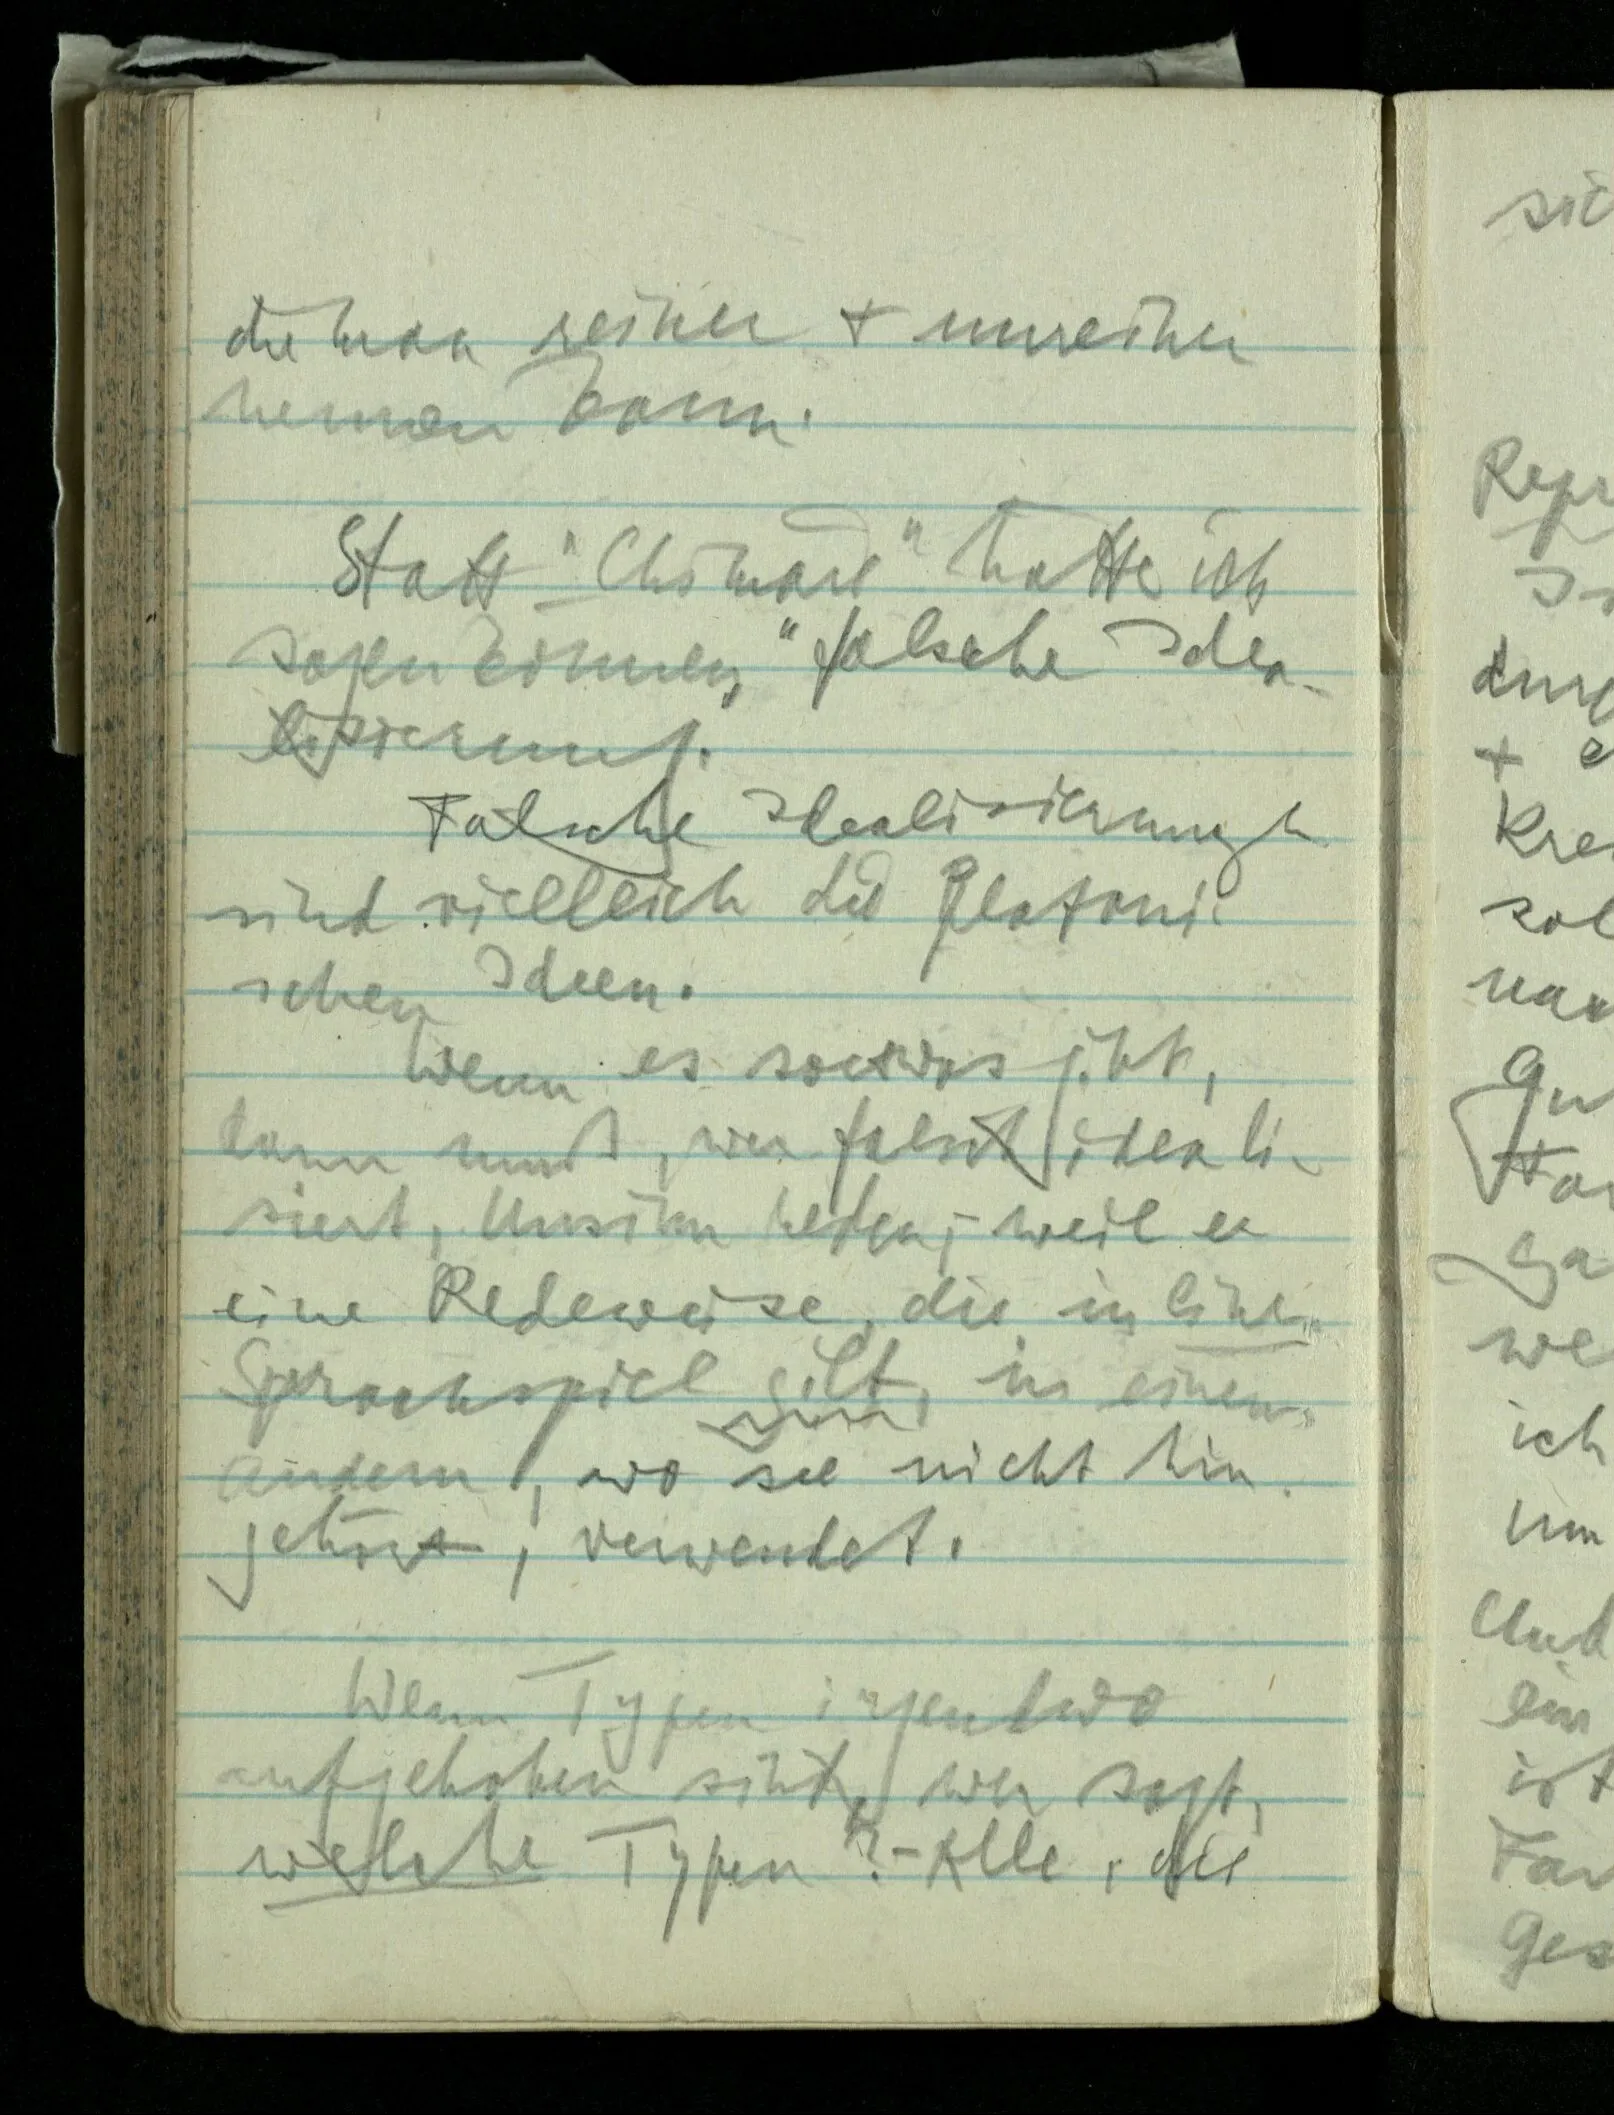 die man reiner + unreiner
nennen kann.
Statt "Chimäre" hätte ich
sagen können, "falsche Idea-
lisierung".
Falsche Idealisierungen
sind vielleicht die Platoni-
schen Ideen.
Wenn es so etwas gibt,
dann muß, wer falsch idealisi-
siert, Unsinn reden, – weil er
eine Redeweise, die in einem
Sprachspiel gilt, in einem
andern, wo sie nicht hin-
gehört, verwendet.
Wenn Typen irgendwo
aufgehoben sind, wer sagt,
welche Typen? – Alle, die
sic
Repr
durc
+ e
sol
we
ich
Und
ein
ist
Far
Ges